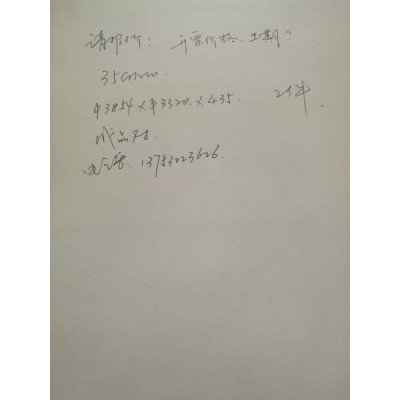 请报价: 开票价格、工期?
35CrMo
φ3854×φ3320×435. 2件.
成品尺寸
电话: 13753023626.